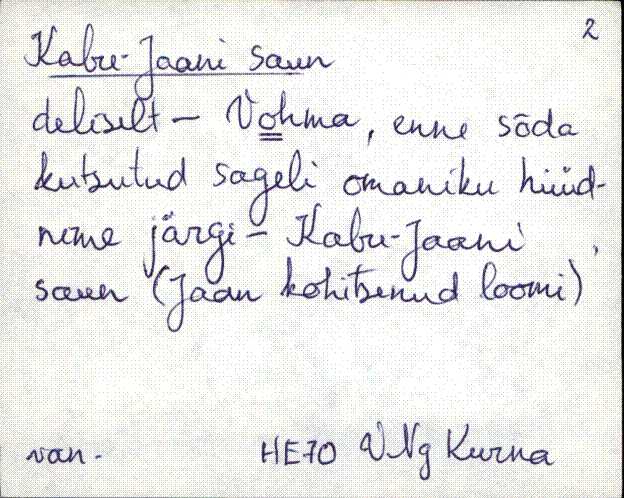 2
Kabu-Jaani saun
deliselt - Vohma, enne sõda
kutsutud sageli omaniku hüüd-
nime järgi - Kabu-Jaani
saun (Jaan kohitsenud loomi)
van.
HE70 V Ng Kurna